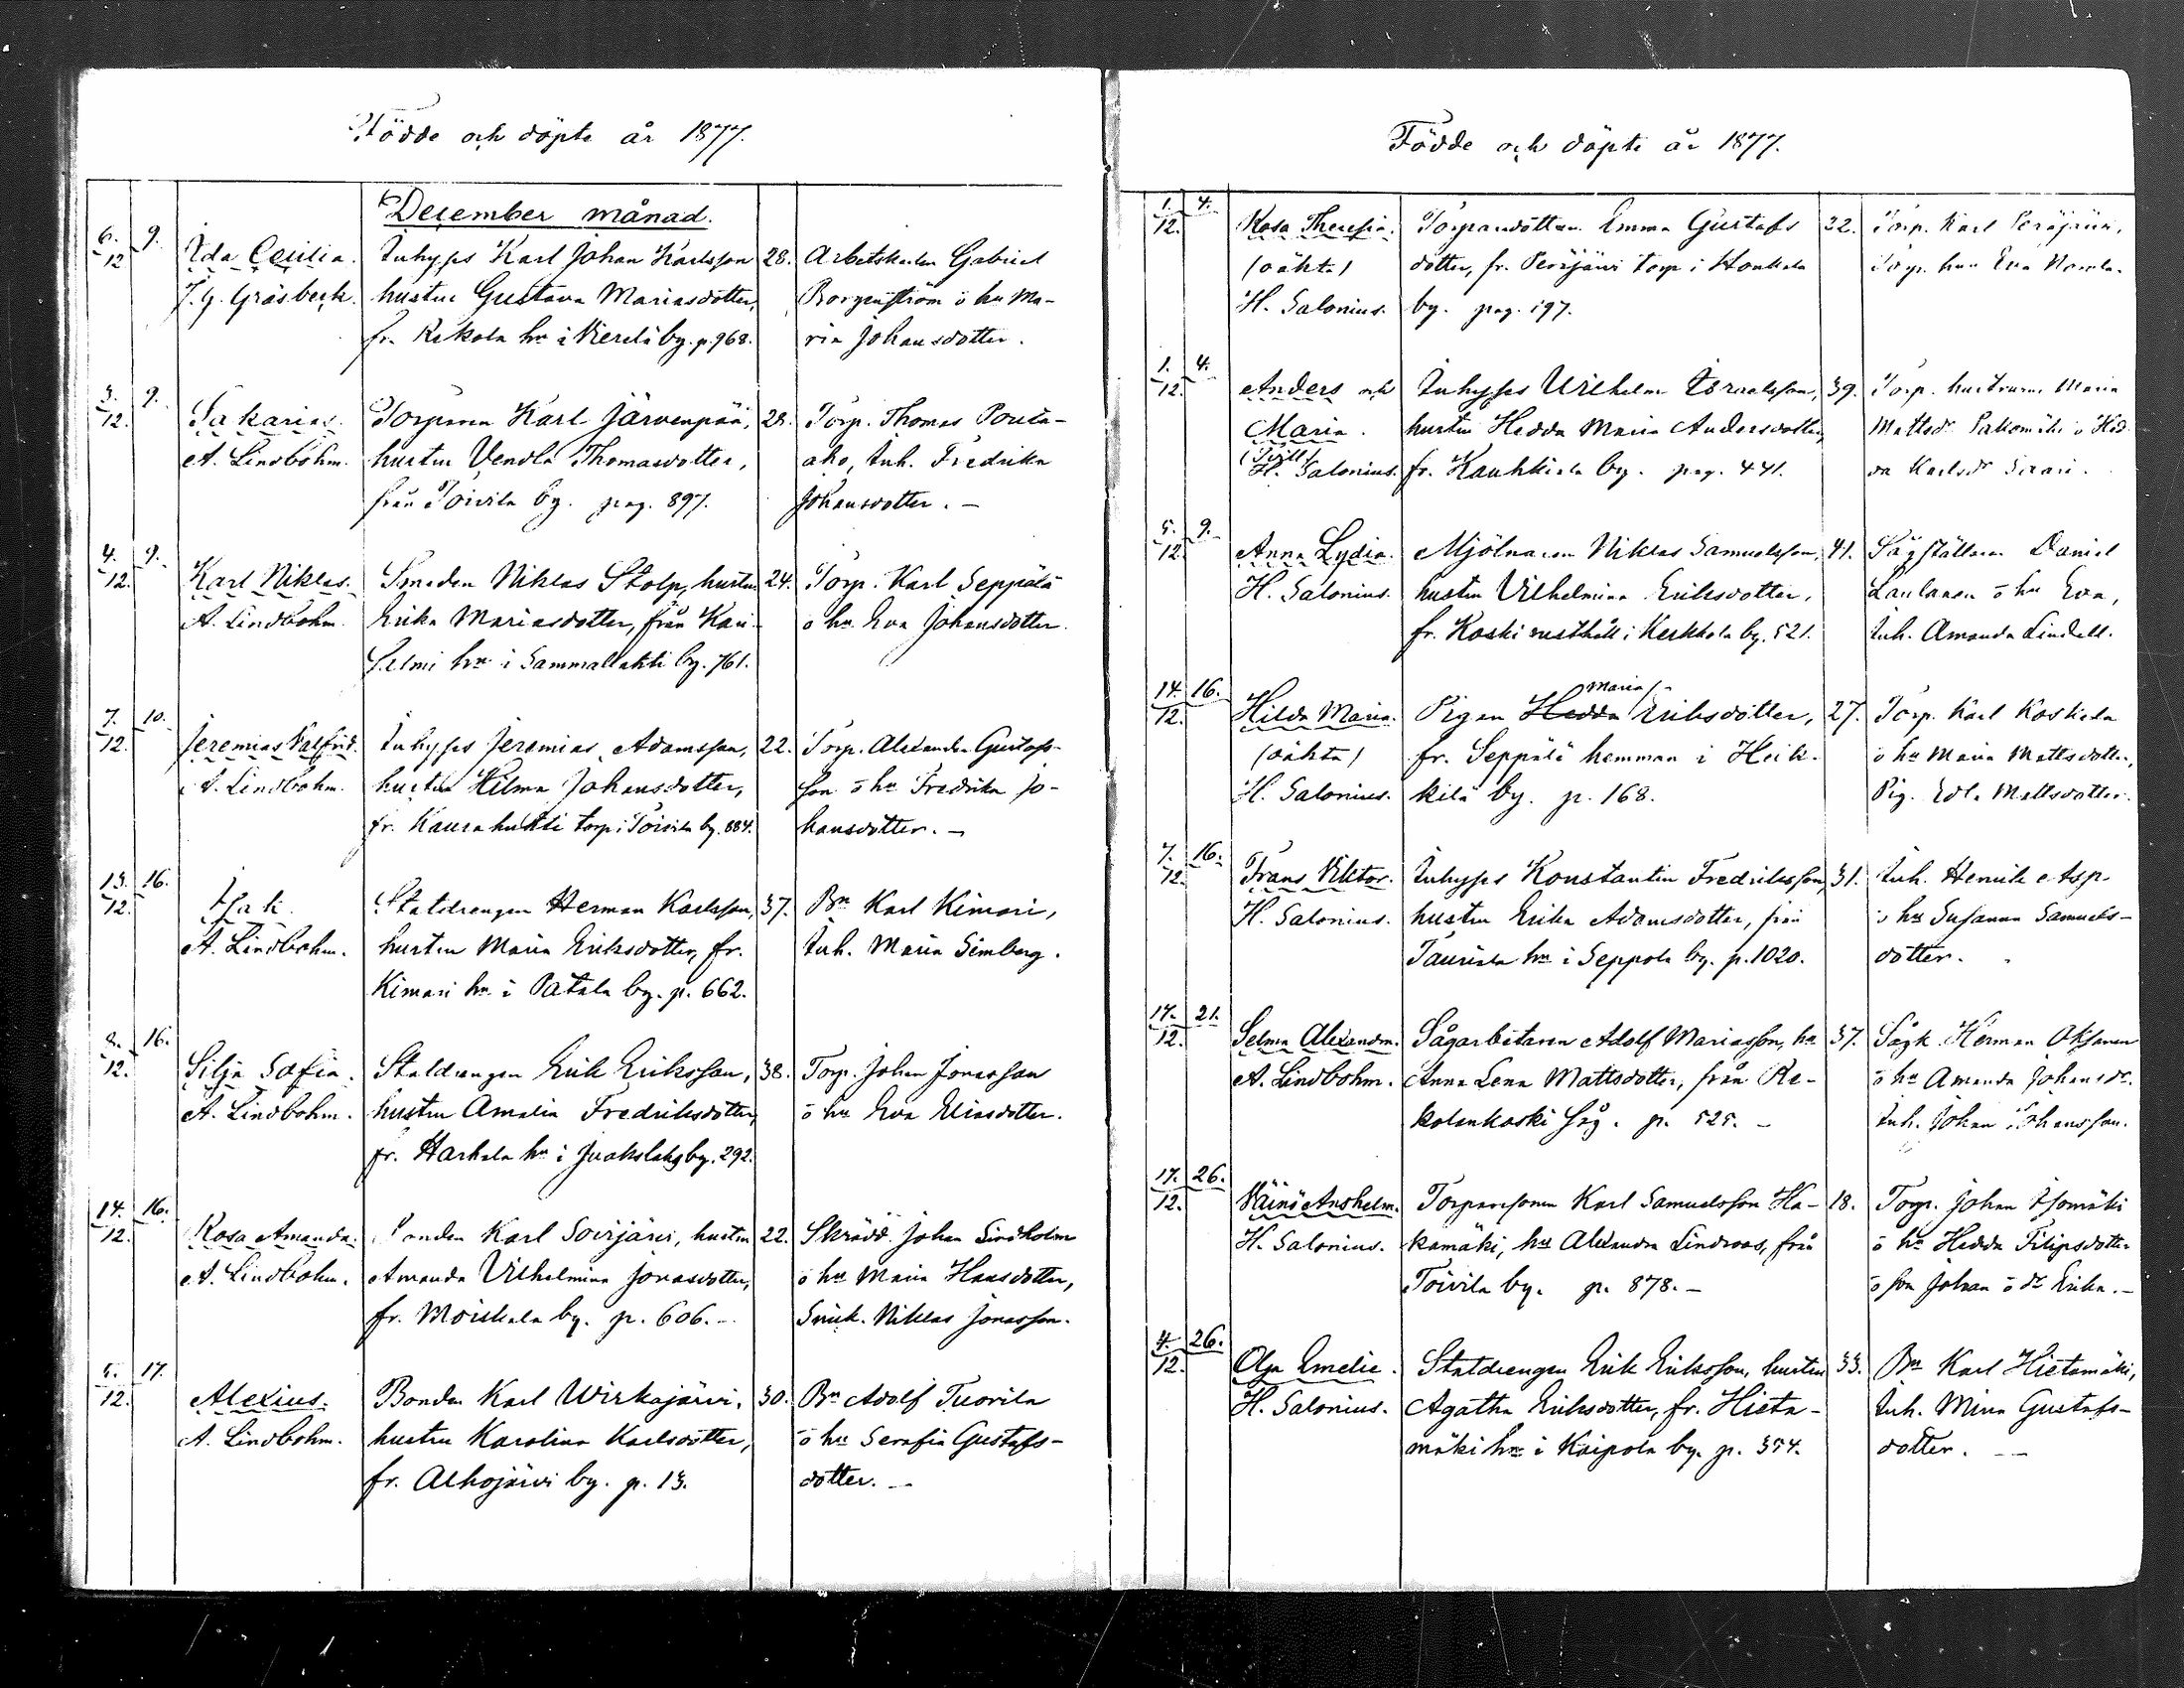 Födde och döpte år 1877.
December månad.
6. 9. Ida Cecilia. Inhyses Karl Johan Karlsson 28. Arbetskarlen Gabriel
12 J. G. Gräsbeck. hustru Gustava Mariasdotter, Borgenström o hu Ma-
fr. Kekola hn i Vierelä by. p. 968. ria Johansdotter.
3. 9. Sakarias. Torparen Karl Järvenpää, 28. Torp. Thomas Pouta-
12. A. Lindbohm. hustru Vendla Thomasdotter, aho, Inh. Fredrika
från Toivila by. pag. 897. Johansdotter. –
4. 9. Karl Niklas. Smeden Niklas Stolp, hustru 24. Torp. Karl Seppälä
12. A. Lindbohm. Erika Mariasdotter, från Kau- o hu Eva Johansdotter.
selmi hn i Sammallahti by. 761.
7. 10. Jeremias Valfrid. Inhyses Jeremias Adamsson, 22. Torp. Alexander Gustafs-
12. A. Lindbohm. hustru Hilma Johansdotter, son o hu Fredrika Jo-
fr. Kaurahuhti torp i Toivila by. 884. hansdotter. –
13. 16. Isak. Statdrengen Herman Karlsson, 37. Bn Karl Kimari,
12. A. Lindbohm. hustru Maria Eriksdotter, fr. Inh. Maria Simberg.
Kimari hn i Patala by. p. 662.
8. 16. Silja Sofia. Statdrengen Erik Eriksson, 38. Torp. Johan Jonasson
12. A. Lindbohm. hustru Amalia Fredriksdotter, o hu Eva Eliasdotter.
fr. Harkala hn i Juokslahti by. 292.
14. 16. Rosa Amanda. Bonden Karl Soirjärvi, hustru 22. Skrädd. Johan Lindholm
12. A. Lindbohm. Amanda Vilhelmina Jonasdotter, o hu Maria Hansdotter,
fr. Moiskala by. p. 606. – Snick. Niklas Jonasson.
5. 17. Alexius. Bonden Karl Wirkajärvi, 30. Bn Adolf Tuorila
12. A. Lindbohm. hustru Karolina Karlsdotter, o hu Serafia Gustafs-
fr. Alhojärvi by. p. 13. dotter. –
Födde och döpte år 1877.
1. 4. Rosa Theresia. Torparedottern Emma Gustafs 22. Torp. Karl Peräjärvi,
12. (oäkta) dotter, fr. Peräjärvi torp i Honkola Torp. hun Eva
H. Salonius. by. pag. 197.
1. 4. Anders och Inhyses Vilhelm Israelsson, 39. Torp. hustrun Maria
12. Maria. hustru Hedda Maria Andersdotter, Mattsdr o Hed-
(Tvill) H. Salonius. fr. Kauhkiala by. pag. 441. da Karlsdr
5. 9. Anna Lydia. Mjölnaren Niklas Samuelsson, 41. Sågställaren Daniel
12. H. Salonius. hustru Vilhelmina Eriksdotter, Laulanen o hu Eva,
fr. Koski rusthåll i Kerkkola by. 521. Inh. Amanda Lindell.
14. 16. Hilda Maria. Pigan Hedda Maria Eriksdotter, 27. Torp. Karl Koskela
12. (oäkta) fr. Seppälä hemman i Heik- o hu Maria Mattsdotter,
H. Salonius. kilä by. p. 168. Pig. Edla Mattsdotter.
7. 16. Frans Viktor. Inhyses Konstantin Fredriksson, 31. Inh. Henrik Asp
12. H. Salonius. hustru Erika Adamsdotter, från o hu Susanna Samuels-
Tauriala hn i Seppola by. p. 1020. dotter.
17. 21. Selma Alexandra. Sågarbetaren Adolf Mariasson, hu 37. Sågk. Herman Oksanen
12. A. Lindbohm. Anna Lena Mattsdotter, från Re- o hu Amanda Johansdr.
kolankoski såg. p. 525. – Inh. Johan Johansson.
17. 26. Väinö Anshelm. Torparesonen Karl Samuelsson Ha- 18. Torp. Johan Isomäki
12. H. Salonius. kamäki, hu Alexandra Lindroos, från o hu Hedda Filipsdotter
Toivila by. p. 878. – o son Johan o dr Erika. –
4. 26. Olga Emelie. Statdrengen Erik Eriksson, hustru 33. Bn Karl Hietamäki,
12. H. Salonius. Agatha Eriksdotter, fr. Hieta- Inh. Mina Gustafs-
mäki hn i Kaipola by. p. 354. dotter. –